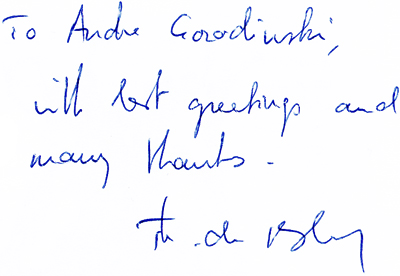 To Andre Gorodinski,
with best greetings and
many thanks.
Th. de